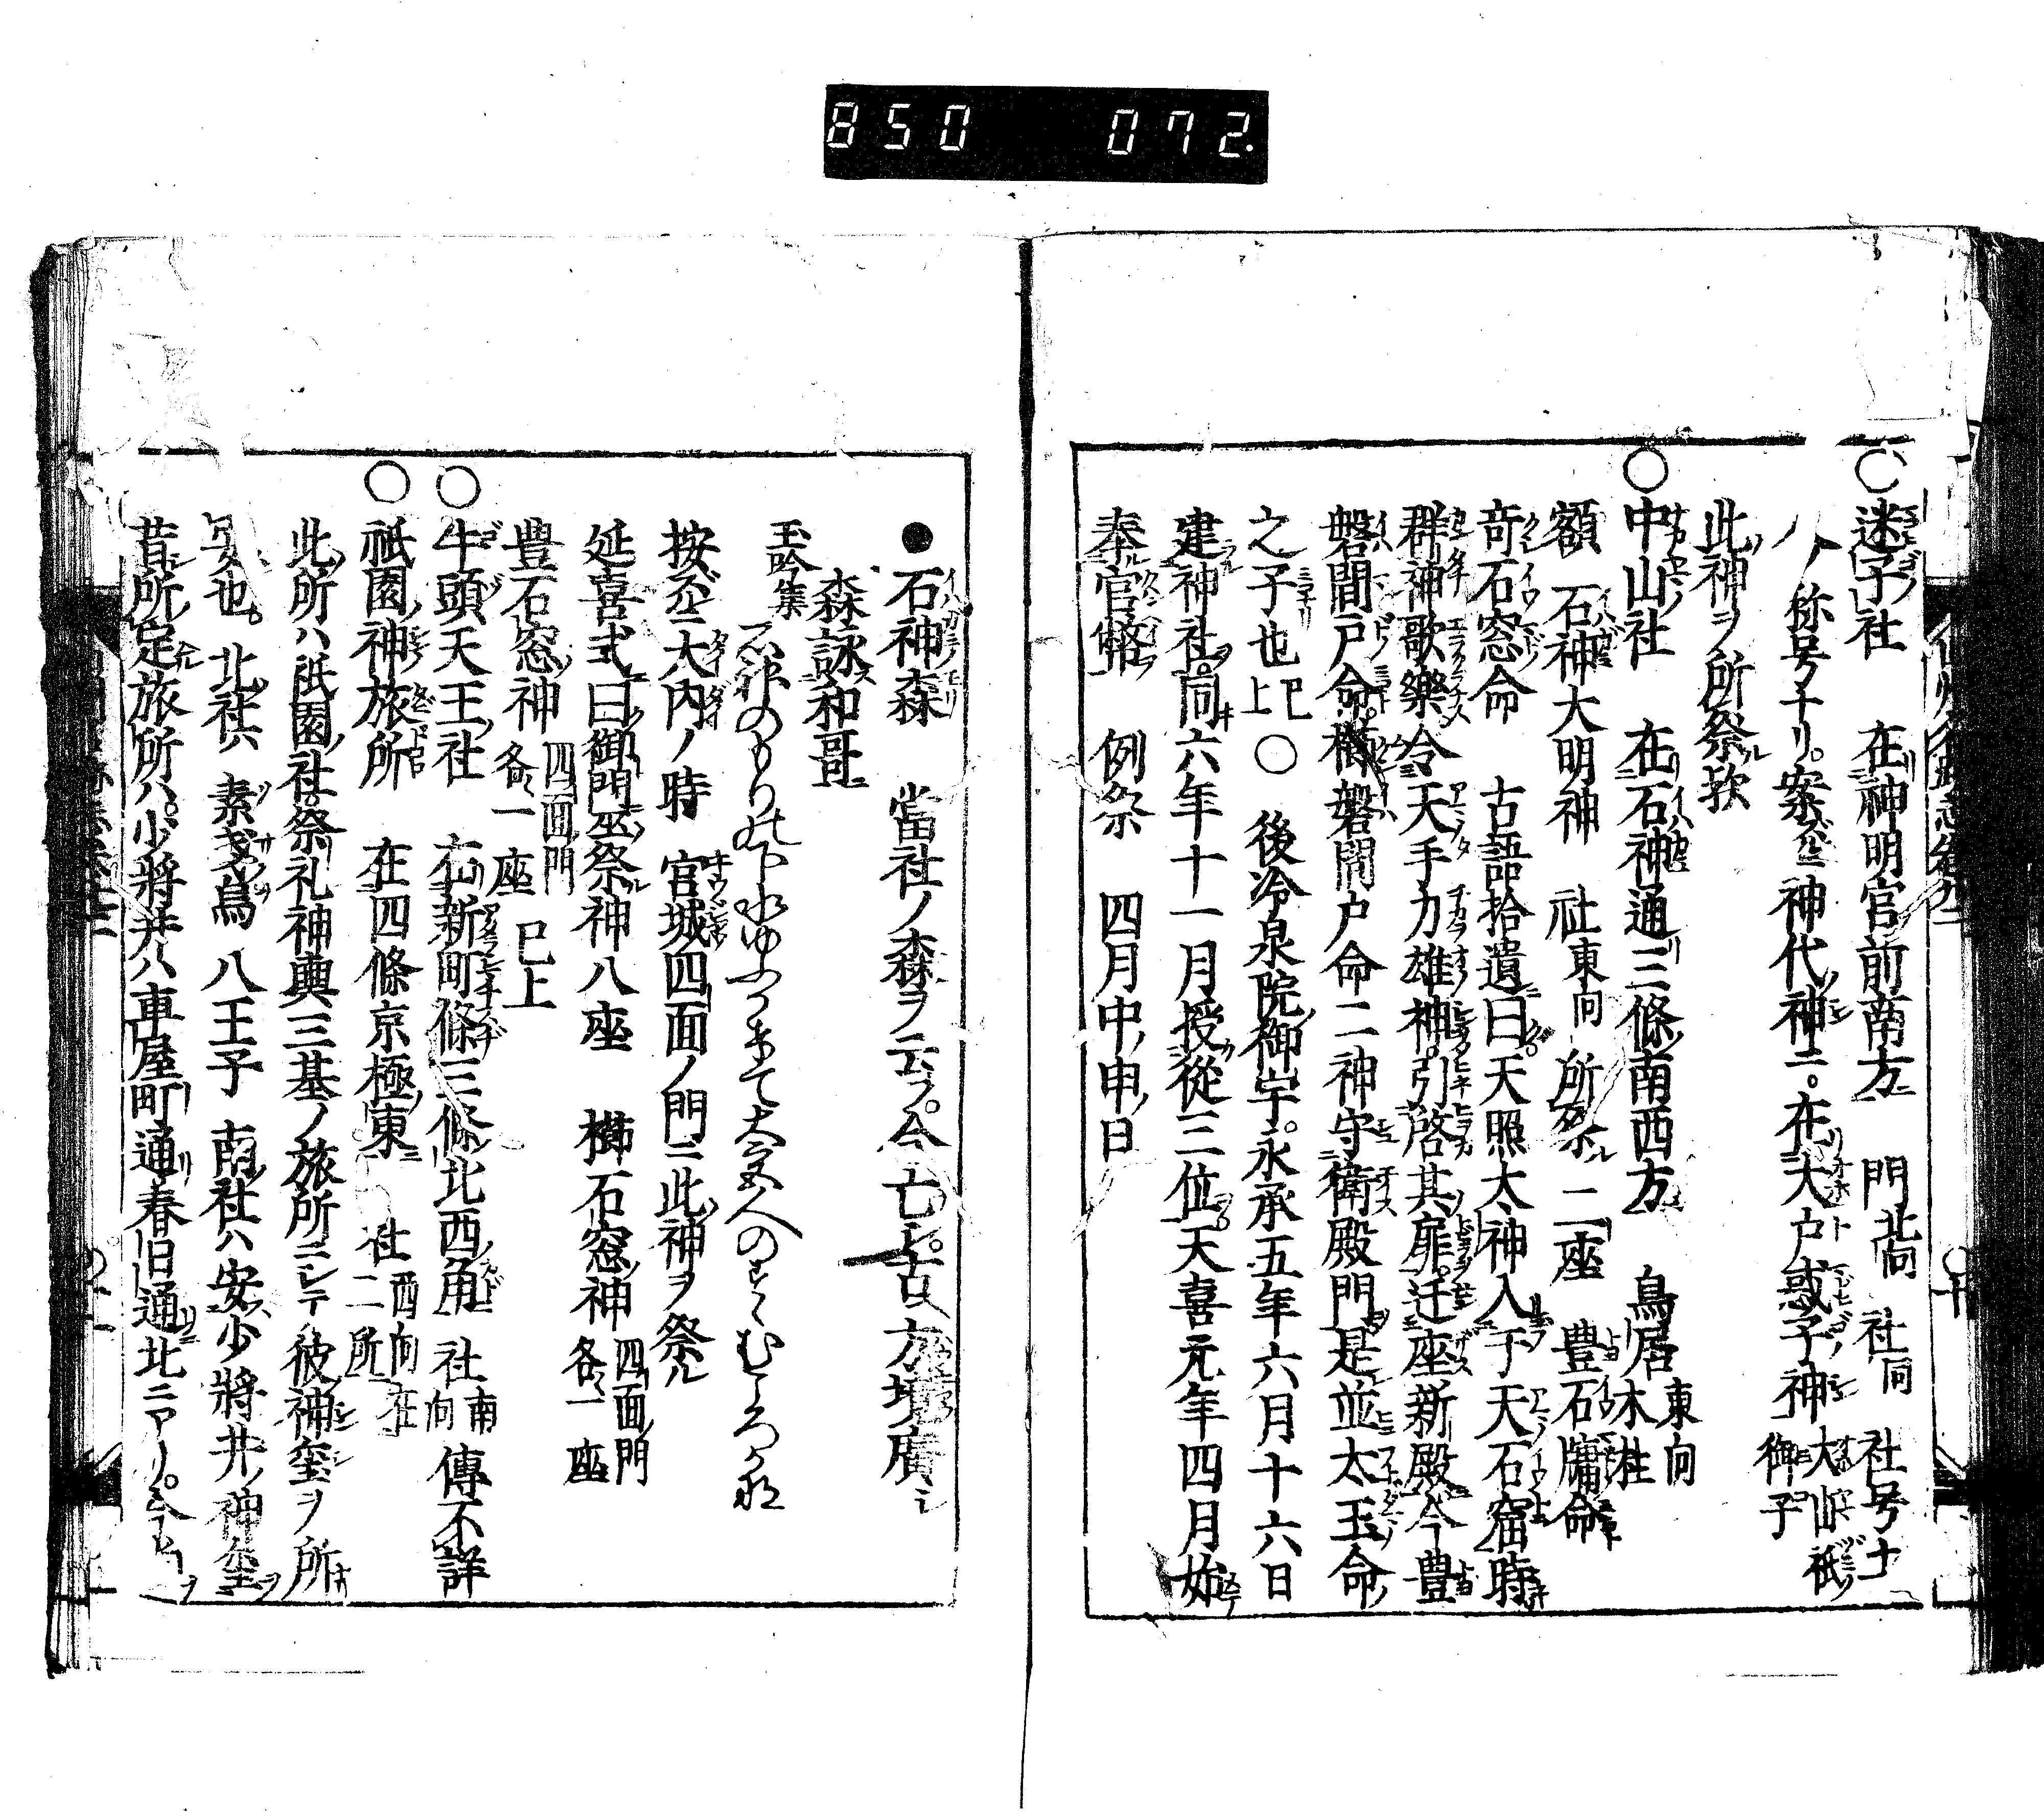 850 072.
○迷子社 在神明宮前南方 門北向 社同 社号士
人ノ称号ナリ。案ズルニ神代ノ神ニ。在大戸惑子神 大山祇御子
此神ヲ所祭歟
○中山社 在石神通三條南西方 鳥居東向木柱
額 石神大明神 社東向 所祭ル二座 豊石牖命
奇石窓命 古語拾遺曰。天照太神入于天石窟時
群神歌樂令天手力雄神。引啓其扉。迁座新殿今豊
磐間戸命。櫛磐間戸命二神守衛殿門是並太玉命
之子也已上 ○ 後冷泉院御宇。永承五年六月十六日
建神社。同六年十一月授從三位。天喜元年四月始
奉官幣 例祭 四月中申日
●石神森 當社ノ森ヲ云フ。今亡シ。古ヘ方境廣シ
森詠和哥
玉吟集 石神のもりの下水ゆふかきて大宮人の
按ズルニ大内ノ時 宮城四面ノ門ニ此神ヲ祭ル
延喜式曰御門巫祭神八座 櫛石窓神 四面門各一座
豊石窓神 四面門各一座 已上
○牛頭天王社 在新町條三條北西角 社南向 傳不詳
○祇園神旅所 在四條京極東 社西向在二所
此所ハ祇園社祭礼神輿三基ノ旅所ニシテ彼神璽ヲ所
安也。北社ハ素戔烏 八王子 南社ハ安少將井ノ神璽ヲ
昔所定旅所ハ。少將井ハ車屋町通春日通北ニアリ。今モ